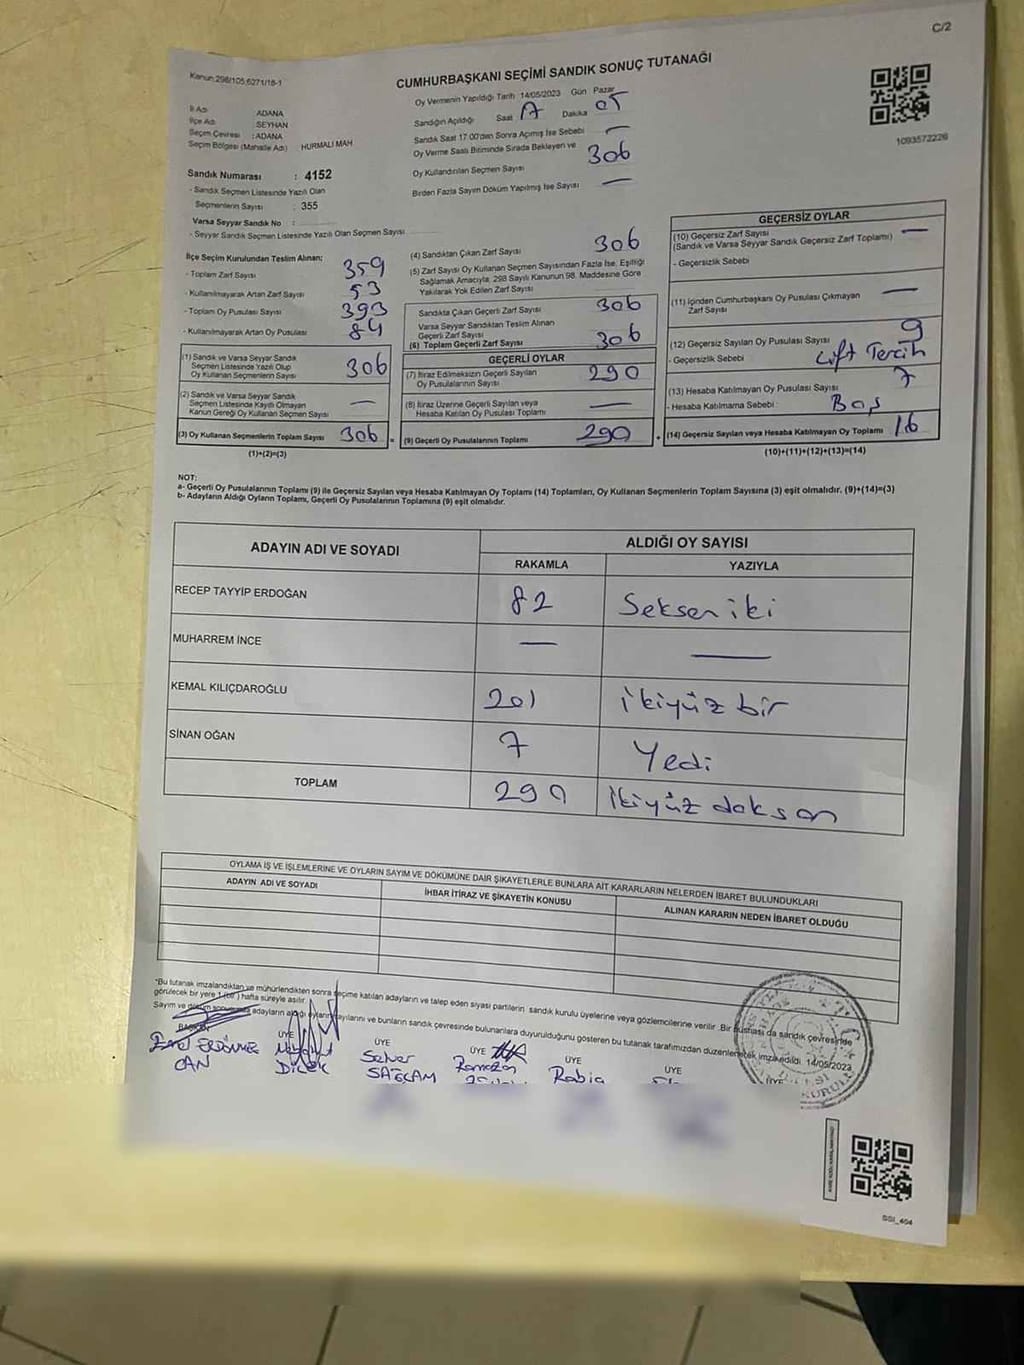 C/2
Kanun:298/105,6271/18-1
CUMHURBAŞKANI SEÇİMİ SANDIK SONUÇ TUTANAĞI
1093572226
İl Adı : ADANA
İlçe Adı : SEYHAN
Seçim Çevresi : ADANA
Seçim Bölgesi (Mahalle Adı) HURMALI MAH
Sandık Numarası : 4152
- Sandık Seçmen Listesinde Yazılı Olan
Seçmenlerin Sayısı : 355
Varsa Seyyar Sandık No :
- Seyyar Sandık Seçmen Listesinde Yazılı Olan Seçmen Sayısı
Oy Vermenin Yapıldığı Tarih 14/05/2023 Gün Pazar
Sandığın Açıldığı Saat 17 Dakika 05
Sandık Saat 17.00'den Sonra Açılmış İse Sebebi —
Oy Verme Saati Bitiminde Sırada Bekleyen ve
Oy Kullandırılan Seçmen Sayısı 306
Birden Fazla Sayım Döküm Yapılmış İse Sayısı —
İlçe Seçim Kurulundan Teslim Alınan;
- Toplam Zarf Sayısı 359
- Kullanılmayarak Artan Zarf Sayısı 53
- Toplam Oy Pusulası Sayısı 393
- Kullanılmayarak Artan Oy Pusulası 84
(1) Sandık ve Varsa Seyyar Sandık
Seçmen Listesinde Yazılı Olup
Oy Kullanan Seçmenlerin Sayısı 306
(2) Sandık ve Varsa Seyyar Sandık
Seçmen Listesinde Kaydı Olmayan
Kanun Gereği Oy Kullanan Seçmen Sayısı —
(3) Oy Kullanan Seçmenlerin Toplam Sayısı 306 =
(1)+(2)=(3)
(4) Sandıktan Çıkan Zarf Sayısı 306
(5) Zarf Sayısı Oy Kullanan Seçmen Sayısından Fazla İse, Eşitliği
Sağlamak Amacıyla; 298 Sayılı Kanunun 98. Maddesine Göre
Yakılarak Yok Edilen Zarf Sayısı
Sandıkta Çıkan Geçerli Zarf Sayısı 306
Varsa Seyyar Sandıktan Teslim Alınan
Geçerli Zarf Sayısı
(6) Toplam Geçerli Zarf Sayısı 306
GEÇERLİ OYLAR
(7) İtiraz Edilmeksizin Geçerli Sayılan
Oy Pusulalarının Sayısı 290
(8) İtiraz Üzerine Geçerli Sayılan veya
Hesaba Katılan Oy Pusulası Toplamı —
(9) Geçerli Oy Pusulalarının Toplamı 290 +
GEÇERSİZ OYLAR
(10) Geçersiz Zarf Sayısı —
(Sandık ve Varsa Seyyar Sandık Geçersiz Zarf Toplamı)
- Geçersizlik Sebebi
(11) İçinden Cumhurbaşkanı Oy Pusulası Çıkmayan
Zarf Sayısı —
(12) Geçersiz Sayılan Oy Pusulası Sayısı 9
- Geçersizlik Sebebi Çift Tercih
(13) Hesaba Katılmayan Oy Pusulası Sayısı 7
- Hesaba Katılmama Sebebi Boş
(14) Geçersiz Sayılan veya Hesaba Katılmayan Oy Toplamı 16
(10)+(11)+(12)+(13)=(14)
NOT:
a- Geçerli Oy Pusulalarının Toplamı (9) ile Geçersiz Sayılan veya Hesaba Katılmayan Oy Toplamı (14) Toplamları, Oy Kullanan Seçmenlerin Toplam Sayısına (3) eşit olmalıdır. (9)+(14)=(3)
b- Adayların Aldığı Oyların Toplamı, Geçerli Oy Pusulalarının Toplamına (9) eşit olmalıdır.
ADAYIN ADI VE SOYADI
ALDIĞI OY SAYISI
RAKAMLA YAZIYLA
RECEP TAYYİP ERDOĞAN 82 Seksen iki
MUHARREM İNCE — —
KEMAL KILIÇDAROĞLU 201 ikiyüz bir
SİNAN OĞAN 7 Yedi
TOPLAM 290 ikiyüz doksan
OYLAMA İŞ VE İŞLEMLERİNE VE OYLARIN SAYIM VE DÖKÜMÜNE DAİR ŞİKAYETLERLE BUNLARA AİT KARARLARIN NELERDEN İBARET BULUNDUKLARI
ADAYIN ADI VE SOYADI İHBAR İTİRAZ VE ŞİKAYETİN KONUSU ALINAN KARARIN NEDEN İBARET OLDUĞU
*Bu tutanak imzalandıktan ve mühürlendikten sonra seçime katılan adayların ve talep eden siyasi partilerin sandık kurulu üyelerine veya gözlemcilerine verilir. Bir nüshası da sandık çevresinde
görülecek bir yere 1 (bir) hafta süreyle asılır.
Sayım ve döküm sonucunda adayların aldığı oyların sayılarını ve bunların sandık çevresinde bulunanlara duyurulduğunu gösteren bu tutanak tarafımızdan düzenlenerek imza edildi. 14/05/2023
BAŞKAN ÜYE ÜYE ÜYE ÜYE ÜYE ÜYE
ERDÖNMEZ Seher Ramazan Rabia
CAN Dilek SAĞLAM
KURULU
SSI_404